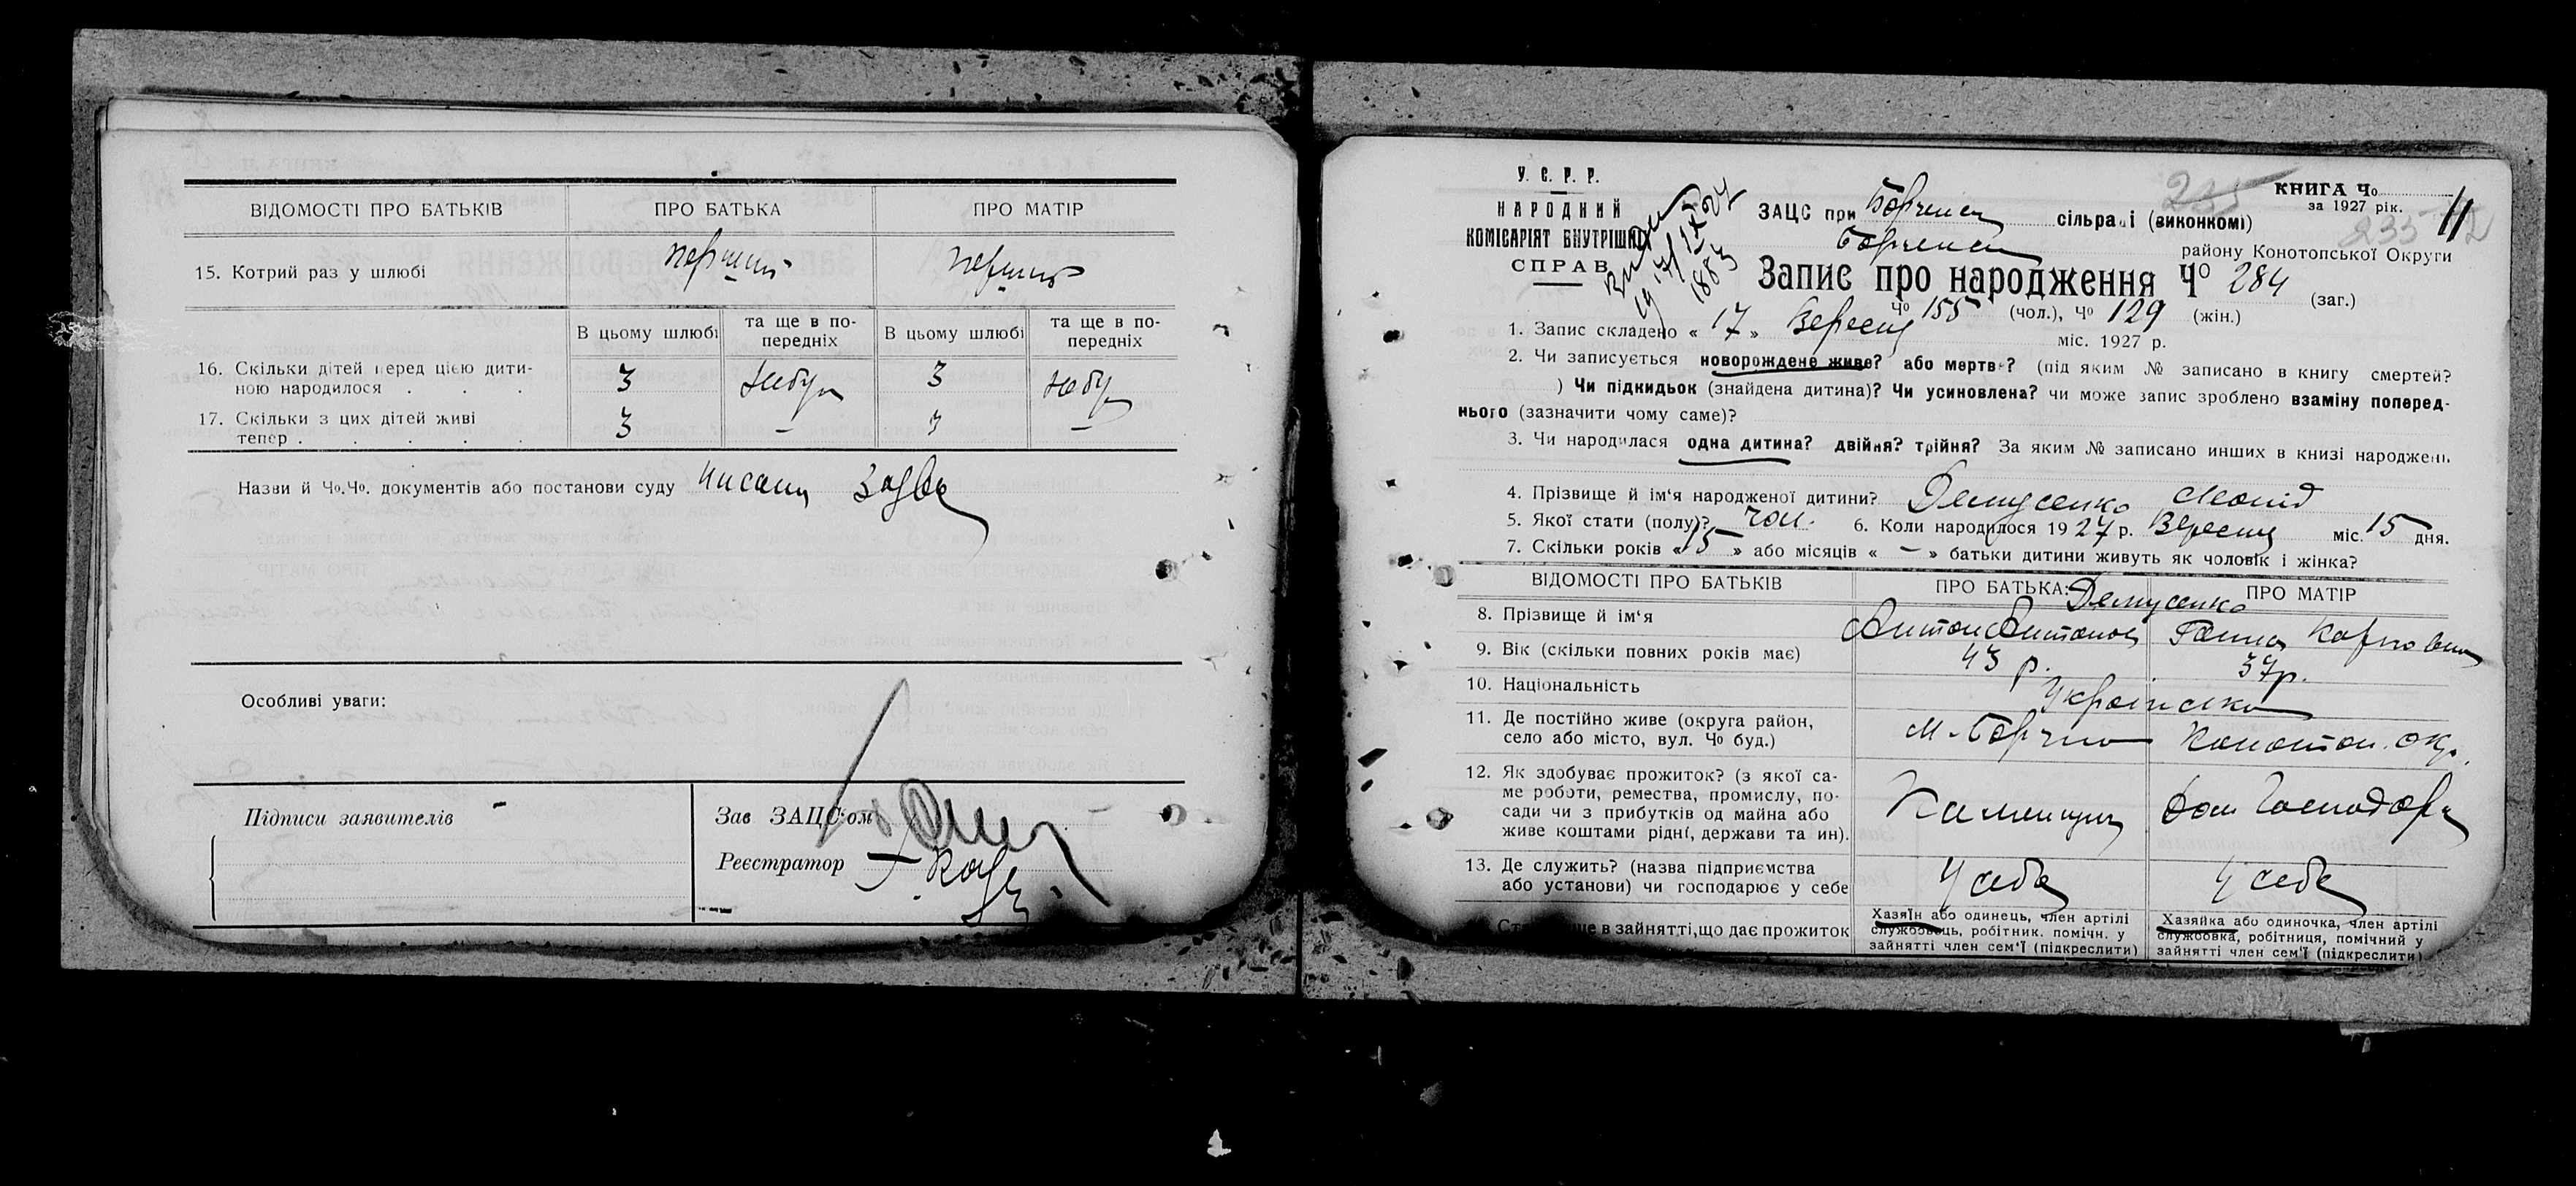 ВІДОМОСТІ ПРО БАТЬКІВ
ПРО БАТЬКА
ПРО МАТІР
15. Котрий раз у шлюбі
перший
перший
В цьому шлюбі
та ще в по-
передніх
В цьому шлюбі
та ще в по-
передніх
16. Скільки дітей перед цією дити-
ною народилося . . .
3
3
17. Скільки з цих дітей живі
тепер . . . . .
3
–
3
–
Назви й Чо.Чо. документів або постанови суду
Особливі уваги:
Підписи заявителів –
Зав ЗАЦС'ом
Реєстратор
У. С. Р. Р.
НАРОДНИЙ
КОМІСАРІЯТ ВНУТРІШНІХ
СПРАВ
19 17/IX 27
1883
ЗАЦС при Борченск сільраді (виконкомі)
235
КНИГА Чо
за 1927 рік.
11
233
Борченск району Конотопської Округи
Запис про народження Чо 284 (заг.)
Чо 155 (чол.), Чо 129 (жін.)
1. Запис складено « 17 » Вересня міс. 1927 р.
2. Чи записується новорождене живе? або мертве? (під яким № записано в книгу смертей?
) Чи підкидьок (знайдена дитина)? Чи усиновлена? чи може запис зроблено взаміну поперед-
нього (зазначити чому саме)?
3. Чи народилася одна дитина? двійня? трійня? За яким № записано инших в книзі народжень
4. Прізвище й ім'я народженої дитини? Демусенко Леонід
5. Якої стати (полу)? чол. 6. Коли народилося 1927 р. Вересня міс. 15 дня.
7. Скільки років « 15 » або місяців « – » батьки дитини живуть як чоловік і жінка?
ВІДОМОСТІ ПРО БАТЬКІВ
ПРО БАТЬКА:
ПРО МАТІР
Демусенко
8. Прізвище й ім'я
Антон Антонов
Ганна Карповна
9. Вік (скільки повних років має)
43 р.
37 р.
10. Національність
Українська
11. Де постійно живе (округа район,
село або місто, вул. Чо буд.)
м. Борзна Конотоп. окр.
12. Як здобуває прожиток? (з якої са-
ме роботи, ремества, промислу, по-
сади чи з прибутків од майна або
живе коштами рідні, держави та ин).
Каменщик
Дом Господар
13. Де служить? (назва підприємства
або установи) чи господарює у себе
У себе
У себе
ще в зайнятті, що дає прожиток
Хазяїн або одинець, член артілі
службовець, робітник. помічн. у
зайнятті член сем'ї (підкреслити)
Хазяйка або одиночка, член артілі
службовка, робітниця, помічний у
зайнятті член сем'ї (підкреслити)